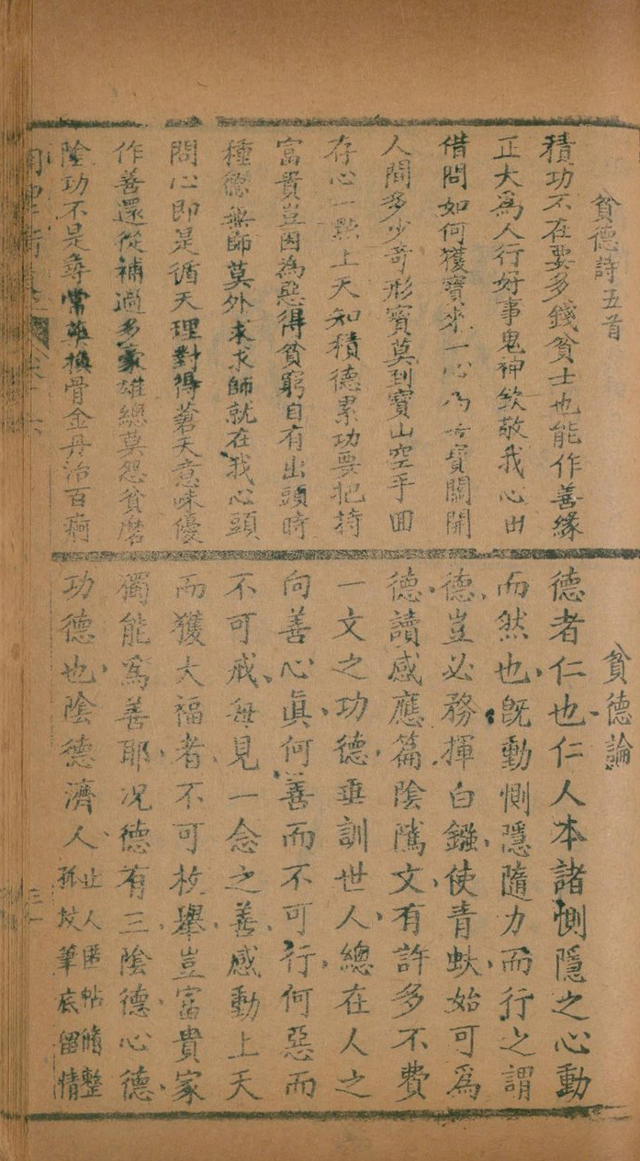 貧德詩五首
積功不在要多錢貧士也能作善緣
正大為人行好事鬼神欽敬我心田
借問如何獲寶來一心為善寶關開
人間多少奇形寶莫到寶山空手回
存心一點上天知積德累功要把持
富貴豈因為惡得貧窮自有出頭時
種德無師莫外求求師就在我心頭
問心即是循天理對得蒼天意味優
作善還從補過多豪雄總莫怨貧磨
陰功不是尋常藥換骨金丹治百痾
貧德論
德者仁也仁人本諸惻隱之心動
而然也既動惻隱隨力而行之謂
德豈必務揮白鏹使青蚨始可為
德讀感應篇陰騭文有許多不費
一文之功德垂訓世人總在人之
向善心真何善而不可行何惡而
不可戒每見一念之善感動上天
而獲大福者不可枚舉豈富貴家
獨能為善耶況德有三陰德心德
功德也陰德濟人止人匿帖脩整
孤坟筆底留情